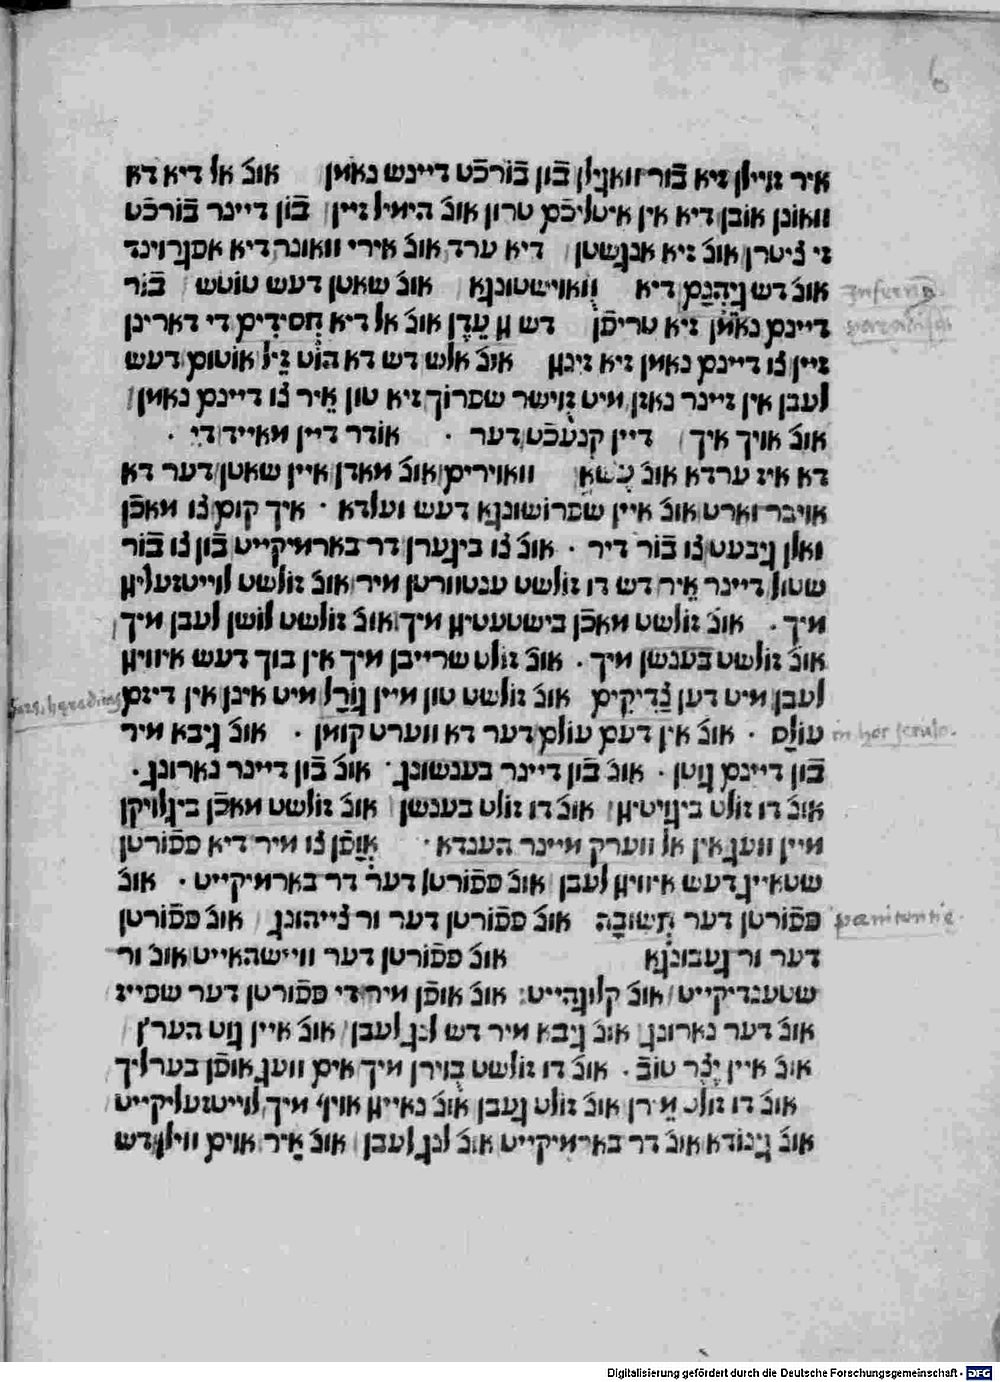 6
איר זיילן זיא בֿור וואגילן בֿון בֿורכֿט דיינש נאמן אונ אל דיא דא
וואונן אובן דיא אין איטליכֿם טרון אונ הימיל זיין בֿון דיינר בֿורכֿט
זי ציטרן אונ זיא אנגשטן דיא ערד אונ אירי וואונר דיא אפגרוינד
אונ דש גיהנם דיא וואוישטונגא אונ שאטן דעש טוטש בֿור
Infern9
דיינם נאמן זיא טריפֿן דש גן עדן אונ אל דיא חסידים די דארינן
paradisi
זיין צו דיינם נאמן זיא זינגן אונ אלש דש דא הוט זיל אוטום דעש
לעבן אין זיינר נאזן מיט זוישר שפרוך זיא טון איר צו דיינם נאמן
אונ אויך איך דיין קנעכֿט דער . אודר דיין מאייד די .
דא איז ערדא אונ עשא וואוירים אונ מאדן איין שאטן דער דא
אויבר וארט אונ איין שפרושונגא דעש וועלדא . איך קום צו מאכֿן
ואלן גיבעט צו בֿור דיר . אונ צו ביגערן דר בארמיקייט בֿון צו בֿור
שטול דיינר איר דש דו זולשט ענטוורטן מיר אונ זולשט לוייטזעליגן
מיך . אונ זולשט מאכֿן בישטעטיגן מיך אונ זולשט לושן לעבן מיך
אונ זולשט בענשן מיך . אונ זולט שרייבן מיך אין בוך דעש איוויגן
לעבן מיט דען צדיקים אונ זולשט טון מיין גורל מיט אינן אין דיזם
עולם . אונ אין דעם עולם דער דא ווערט קומן . אונ גיבא מיר
in hoc seculo.
בֿון דיינם גוטן . אונ בֿון דיינר בענשונג . אונ בֿון דיינר נארונג .
אונ דו זולט ביגוטיגן אונ דו זולט בענשן אונ זולשט מאכֿן ביגלויקן
מיין וועג אין אל ווערק מיינר הענדא . אופֿן צו מיר דיא פפֿורטן
שטאייג דעש איוויגן לעבן אונ פפֿורטן דער דר בארמיקייט . אונ
פפֿורטן דער תשובה אונ פפֿורטן דער ור צייהונג אונ פפֿורטן
penitentie.
דער ור געבונגא אונ פפֿורטן דער וויישהאייט אונ ור
שטענדיקייט אונ קלוגהייט אונ אופֿן מיר די פפֿורטן דער שפייז
אונ דער נארונג אונ גיבא מיר דש לנג לעבן אונ איין גוט הערץ
אונ איין יצר טוב . אונ דו זולשט בוירן מיך אים וועג אופֿן בערליך
אונ דו זולט אונ זולט געבן אונ נאייגן אויף מיך לוייטזעליקייט
אונ גינודא אונ דר בארמיקייט אונ לנג לעבן אונ איר אוים ווילן דש
Digitalisierung gefördert durch die Deutsche Forschungsgemeinschaft - DFG